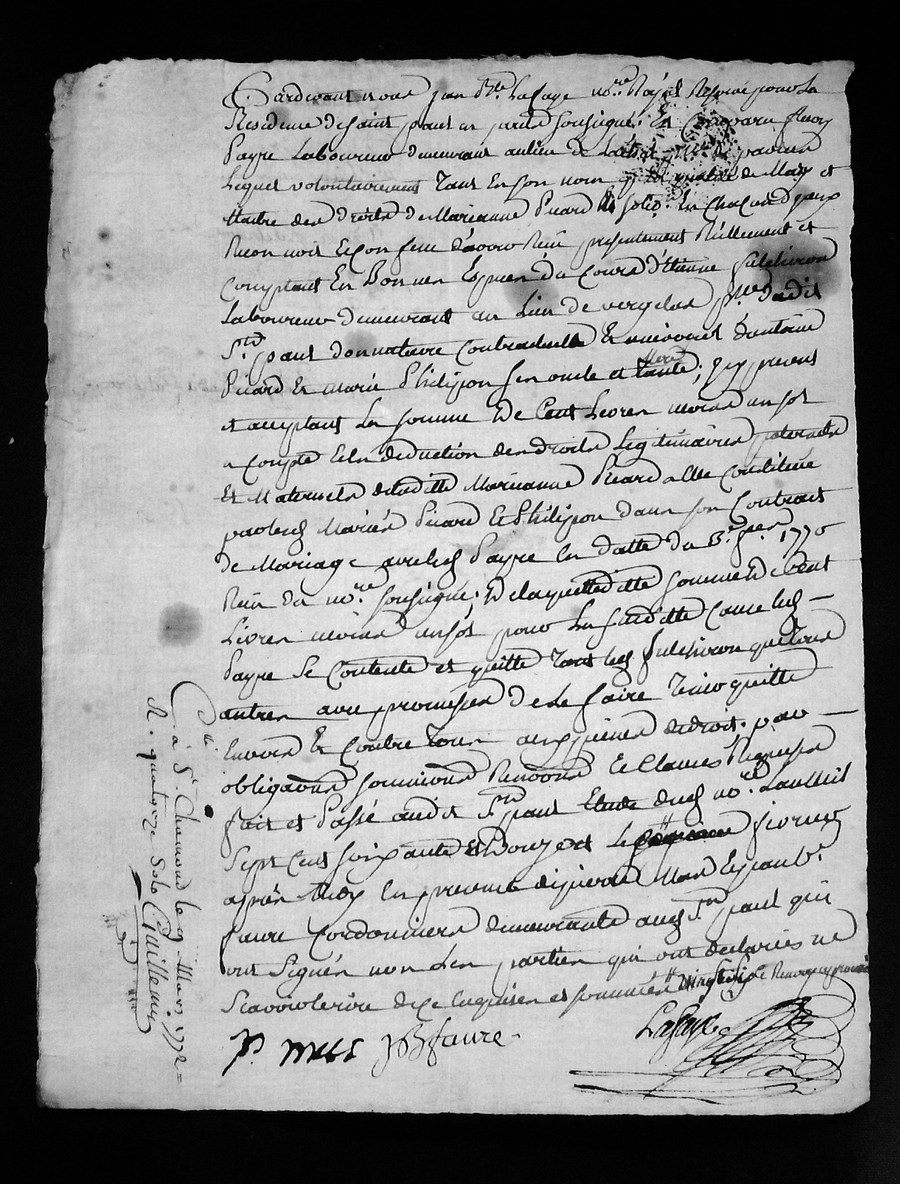 Pardevant nous jean Bte Lafaye nore Royal Reservé pour La
Residence de saint paul en jarêt soussigné; En
Payre Laboureur demeurant au lieu de
Lequel volontairement tant En son nom qualité de Mary et
Maitre des droits de Marianne Picard solid. En chacun d'yeux
Reconnoit Et Confesse d'avoir Reçu presentement Réellement et
Comptant En Bonnes Especes du Cours d'Etienne fulchiron
Laboureur demeurant au Lieu de vergelas psse dudit
St paul donnataire Contractuelle Et universel d'antoine
Picard Et marie Philipon ses oncle et tante; icy present
et acceptant La somme de Cent Livres moins un sol
a Compte Et En deduction des droits Legitimaires paternels
Et Maternels de laditte Marianne Picard a Elle Constitués
par lesd Mariés Picard Et Philipon dans son Contract
de Mariage avec led Payre En datte du 1770
Reçu du nore soussigné; De laquelle ditte somme de Cent
Livres moins un sol pour La susditte Cause led
Payre se Contente et quitte tant led fulchiron que tous
autres avec promesse de Le faire tenir quitte
Envers Et Contre tous aux peines de droit. par
obligations soumissions Renonons Et Clauses Requises
fait et Passé audit St paul Etude dud nore. L'an mil
Sept Cent soixante Et Douze et Le fevrier
après Midy En presence de pierre Mas Et jean Bte
faure Cordonniers demeurants aud St paul qui
ont Signés non Les parties qui ont declarés ne
Scavoir Ecrire de Ce Enquises et sommées
pr. MAS JB faure
Lafaye
C.lé à St Chamond le 9 Mars 1772
R. quatorze sols Guillemin